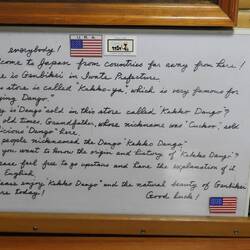 U S A
everybody!
come to Japan from countries far away from here!
is Genbikei in Iwate Prefecture.
store is called "Kakko-ya", which is very famous for
ying Dango".
y is Dango sold in this store called "Kakko Dango"?
old times, Grandfather, whose nickname was "Cuckoo", sold
licious Dango" here.
people nicknamed the Dango "Kakko Dango".
you want to know the origin and history of "Kakko Dango"?
ease feel free to go upstairs and have the explanation of it
English.
ease enjoy "Kakko Dango" and the natural beauty of Genbikei
ere today!
Good luck!